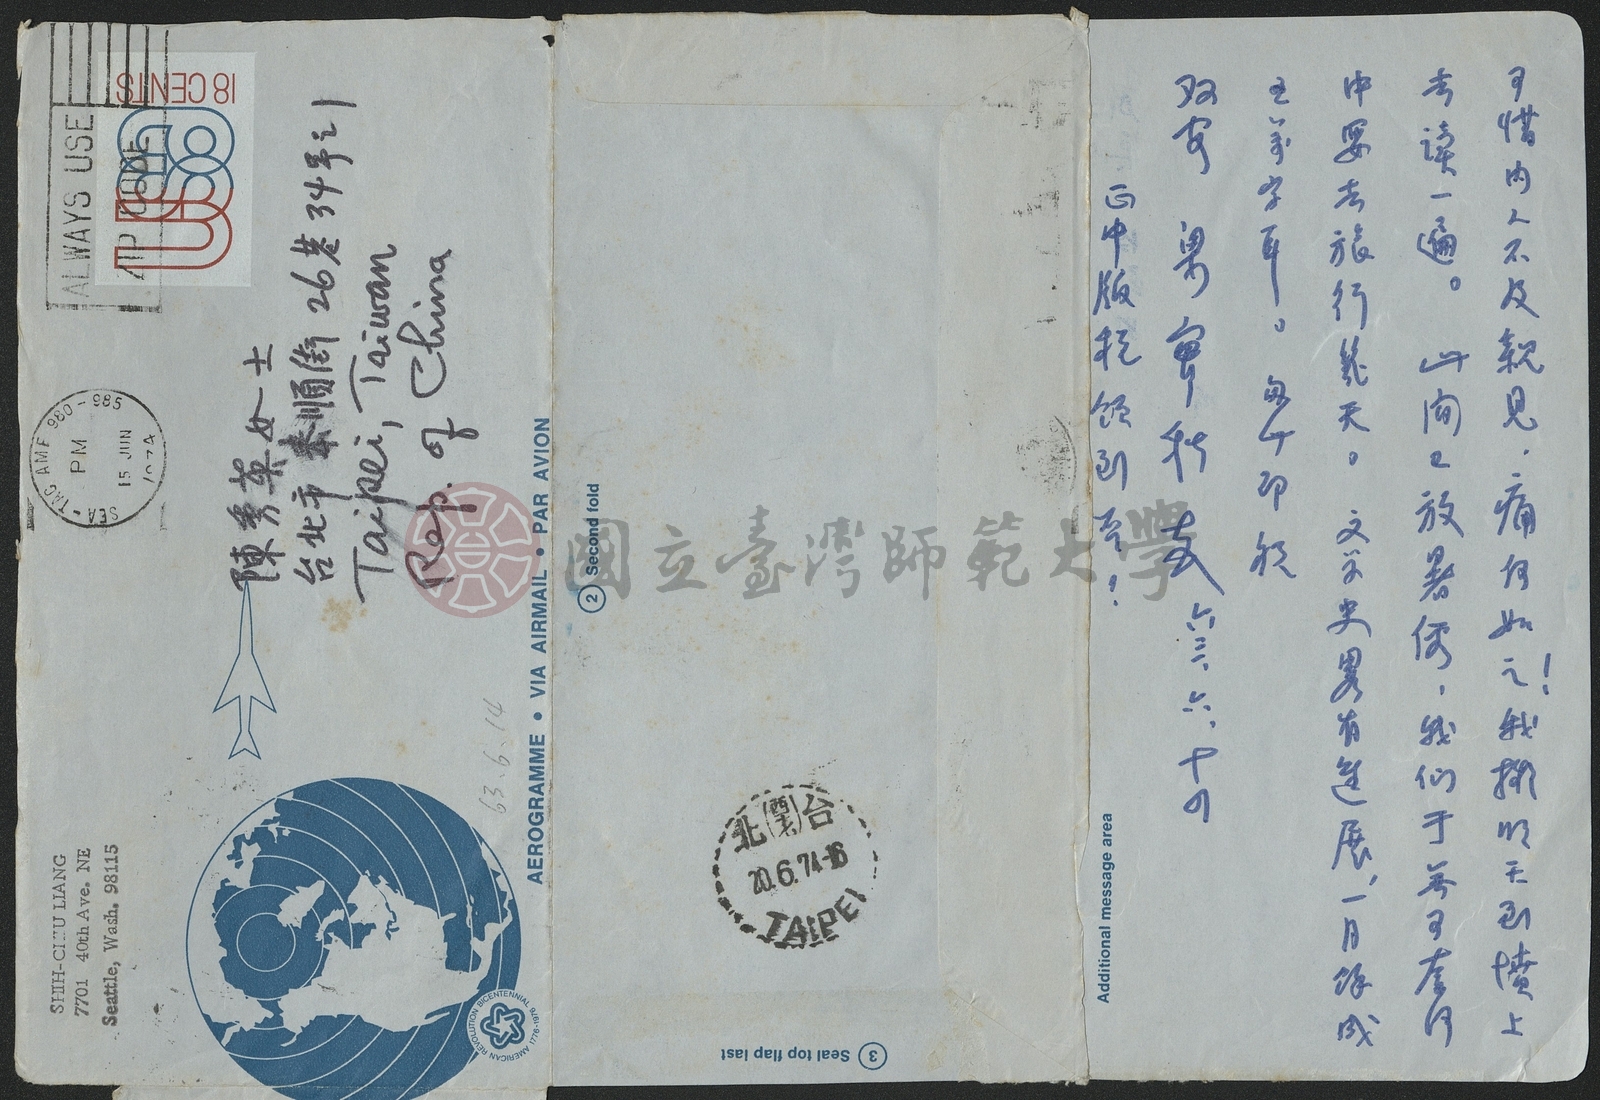 18 CENTS
USA
ALWAYS USE
ZIP CODE
SEA-TAC AMF 980-985
PM
15 JUN
1974
陳秀英女士
台北市泰順街26巷34号之1
Taipei, Taiwan
Rep. of China
63.6.14
SHIH-CHIU LIANG
7701 40th Ave. NE
Seattle, Wash. 98115
AMERICAN REVOLUTION BICENTENNIAL 1776-1976
AEROGRAMME • VIA AIRMAIL • PAR AVION
2 Second fold
國立臺灣師範大學
台北
20.6.74-16
TAIPEI
3 Seal top flap last
Additional message area
可惜内人不及親見，痛何如之！我擬明天到墳上
去读一遍。此间已放暑假，我们于無可奈何
中要去旅行幾天。文学史畧有進展，一月餘成
五萬字耳。匆此即祝
双安 梁實秋 六三、六、十四
正中版税領到否？